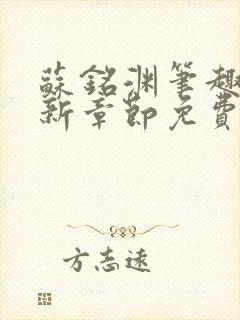 蘇銘淵筆趣
新章節免費
方志遠